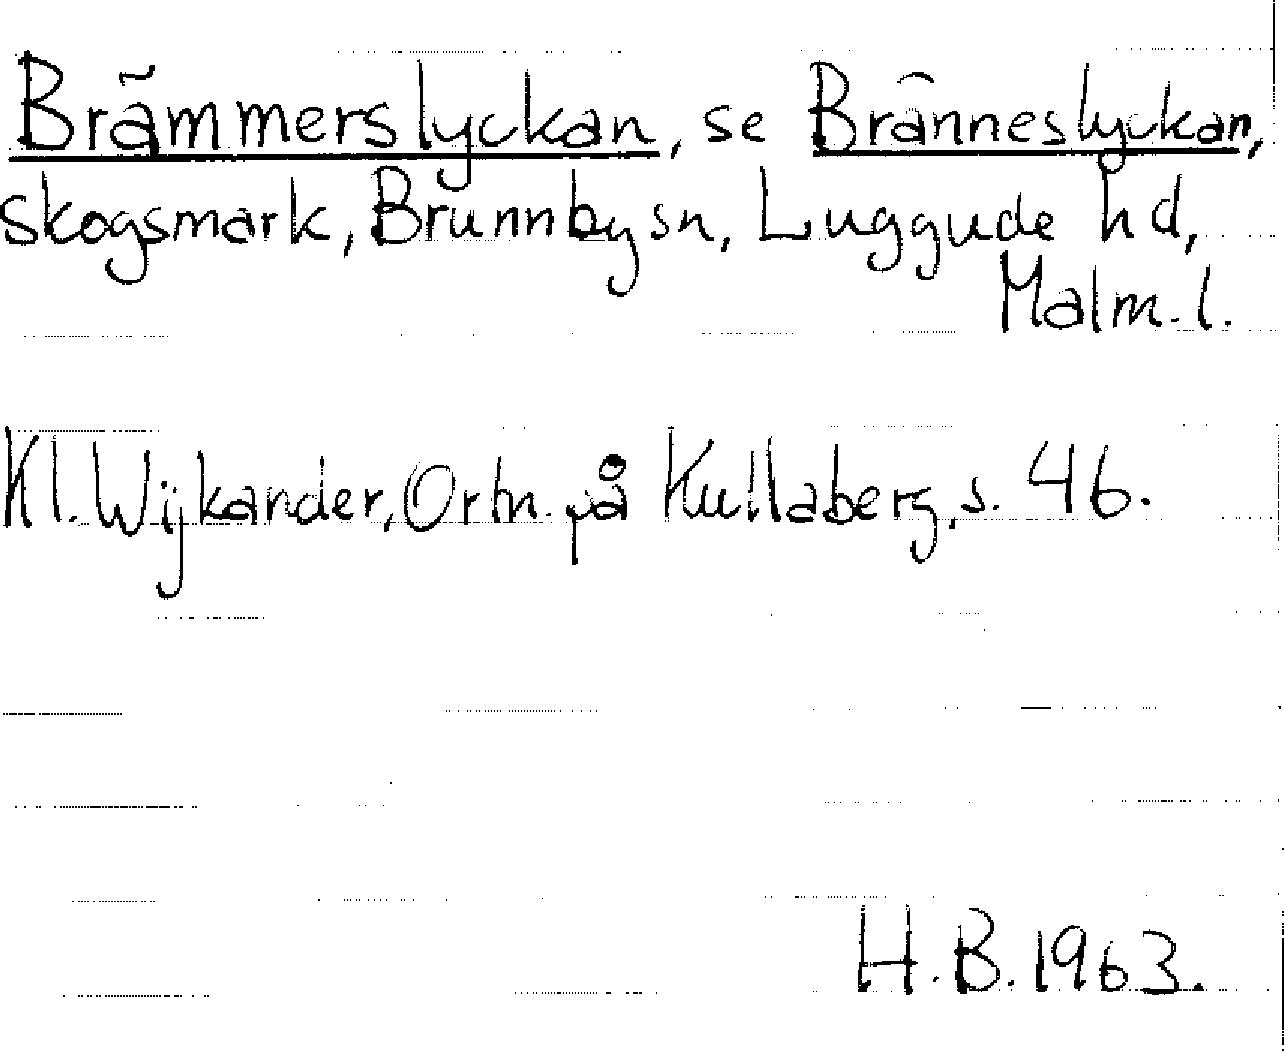 Brämmerslyckan, se Bränneslyckan,
skogsmark, Brunnby sn, Luggude hd,
Malm. l.
Kl. Wijkander, Ortn. på Kullaberg, s. 46.
H. B. 1963.